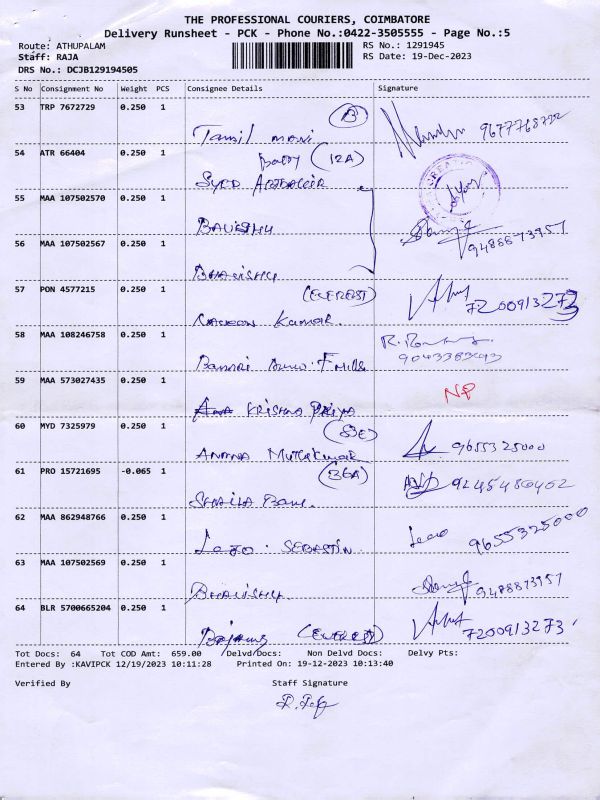 THE PROFESSIONAL COURIERS, COIMBATORE
Delivery Runsheet - PCK - Phone No.:0422-3505555 - Page No.:5
Route: ATHUPALAM RS No.: 1291945
Staff: RAJA RS Date: 19-Dec-2023
DRS No.: DCJB129194505
S No Consignment No Weight PCS Consignee Details Signature
53 TRP 7672729 0.250 1
B
Tamil mani 9677768722
54 ATR 66404 0.250 1
(12A)
Syed
55 MAA 107502570 0.250 1
Bavishu
9488873957
56 MAA 107502567 0.250 1
Bhavishu
57 PON 4577215 0.250 1
(EVEREST)
Kumar. 7200913273
58 MAA 108246758 0.250 1
Bannari Mills
59 MAA 573027435 0.250 1
NP
Krishna Priya
60 MYD 7325979 0.250 1
(S3E)
Anana Muthukumar 9655325000
61 PRO 15721695 -0.065 1
(36A)
Shaila Banu. 9245480402
62 MAA 862948766 0.250 1
SEBASTIN 9655325000
63 MAA 107502569 0.250 1
Bhavishu 9488873957
64 BLR 5700665204 0.250 1
(EVEREST) 7200913273
Tot Docs: 64 Tot COD Amt: 659.00 Delvd Docs: Non Delvd Docs: Delvy Pts:
Entered By :KAVIPCK 12/19/2023 10:11:28 Printed On: 19-12-2023 10:13:40
Verified By Staff Signature